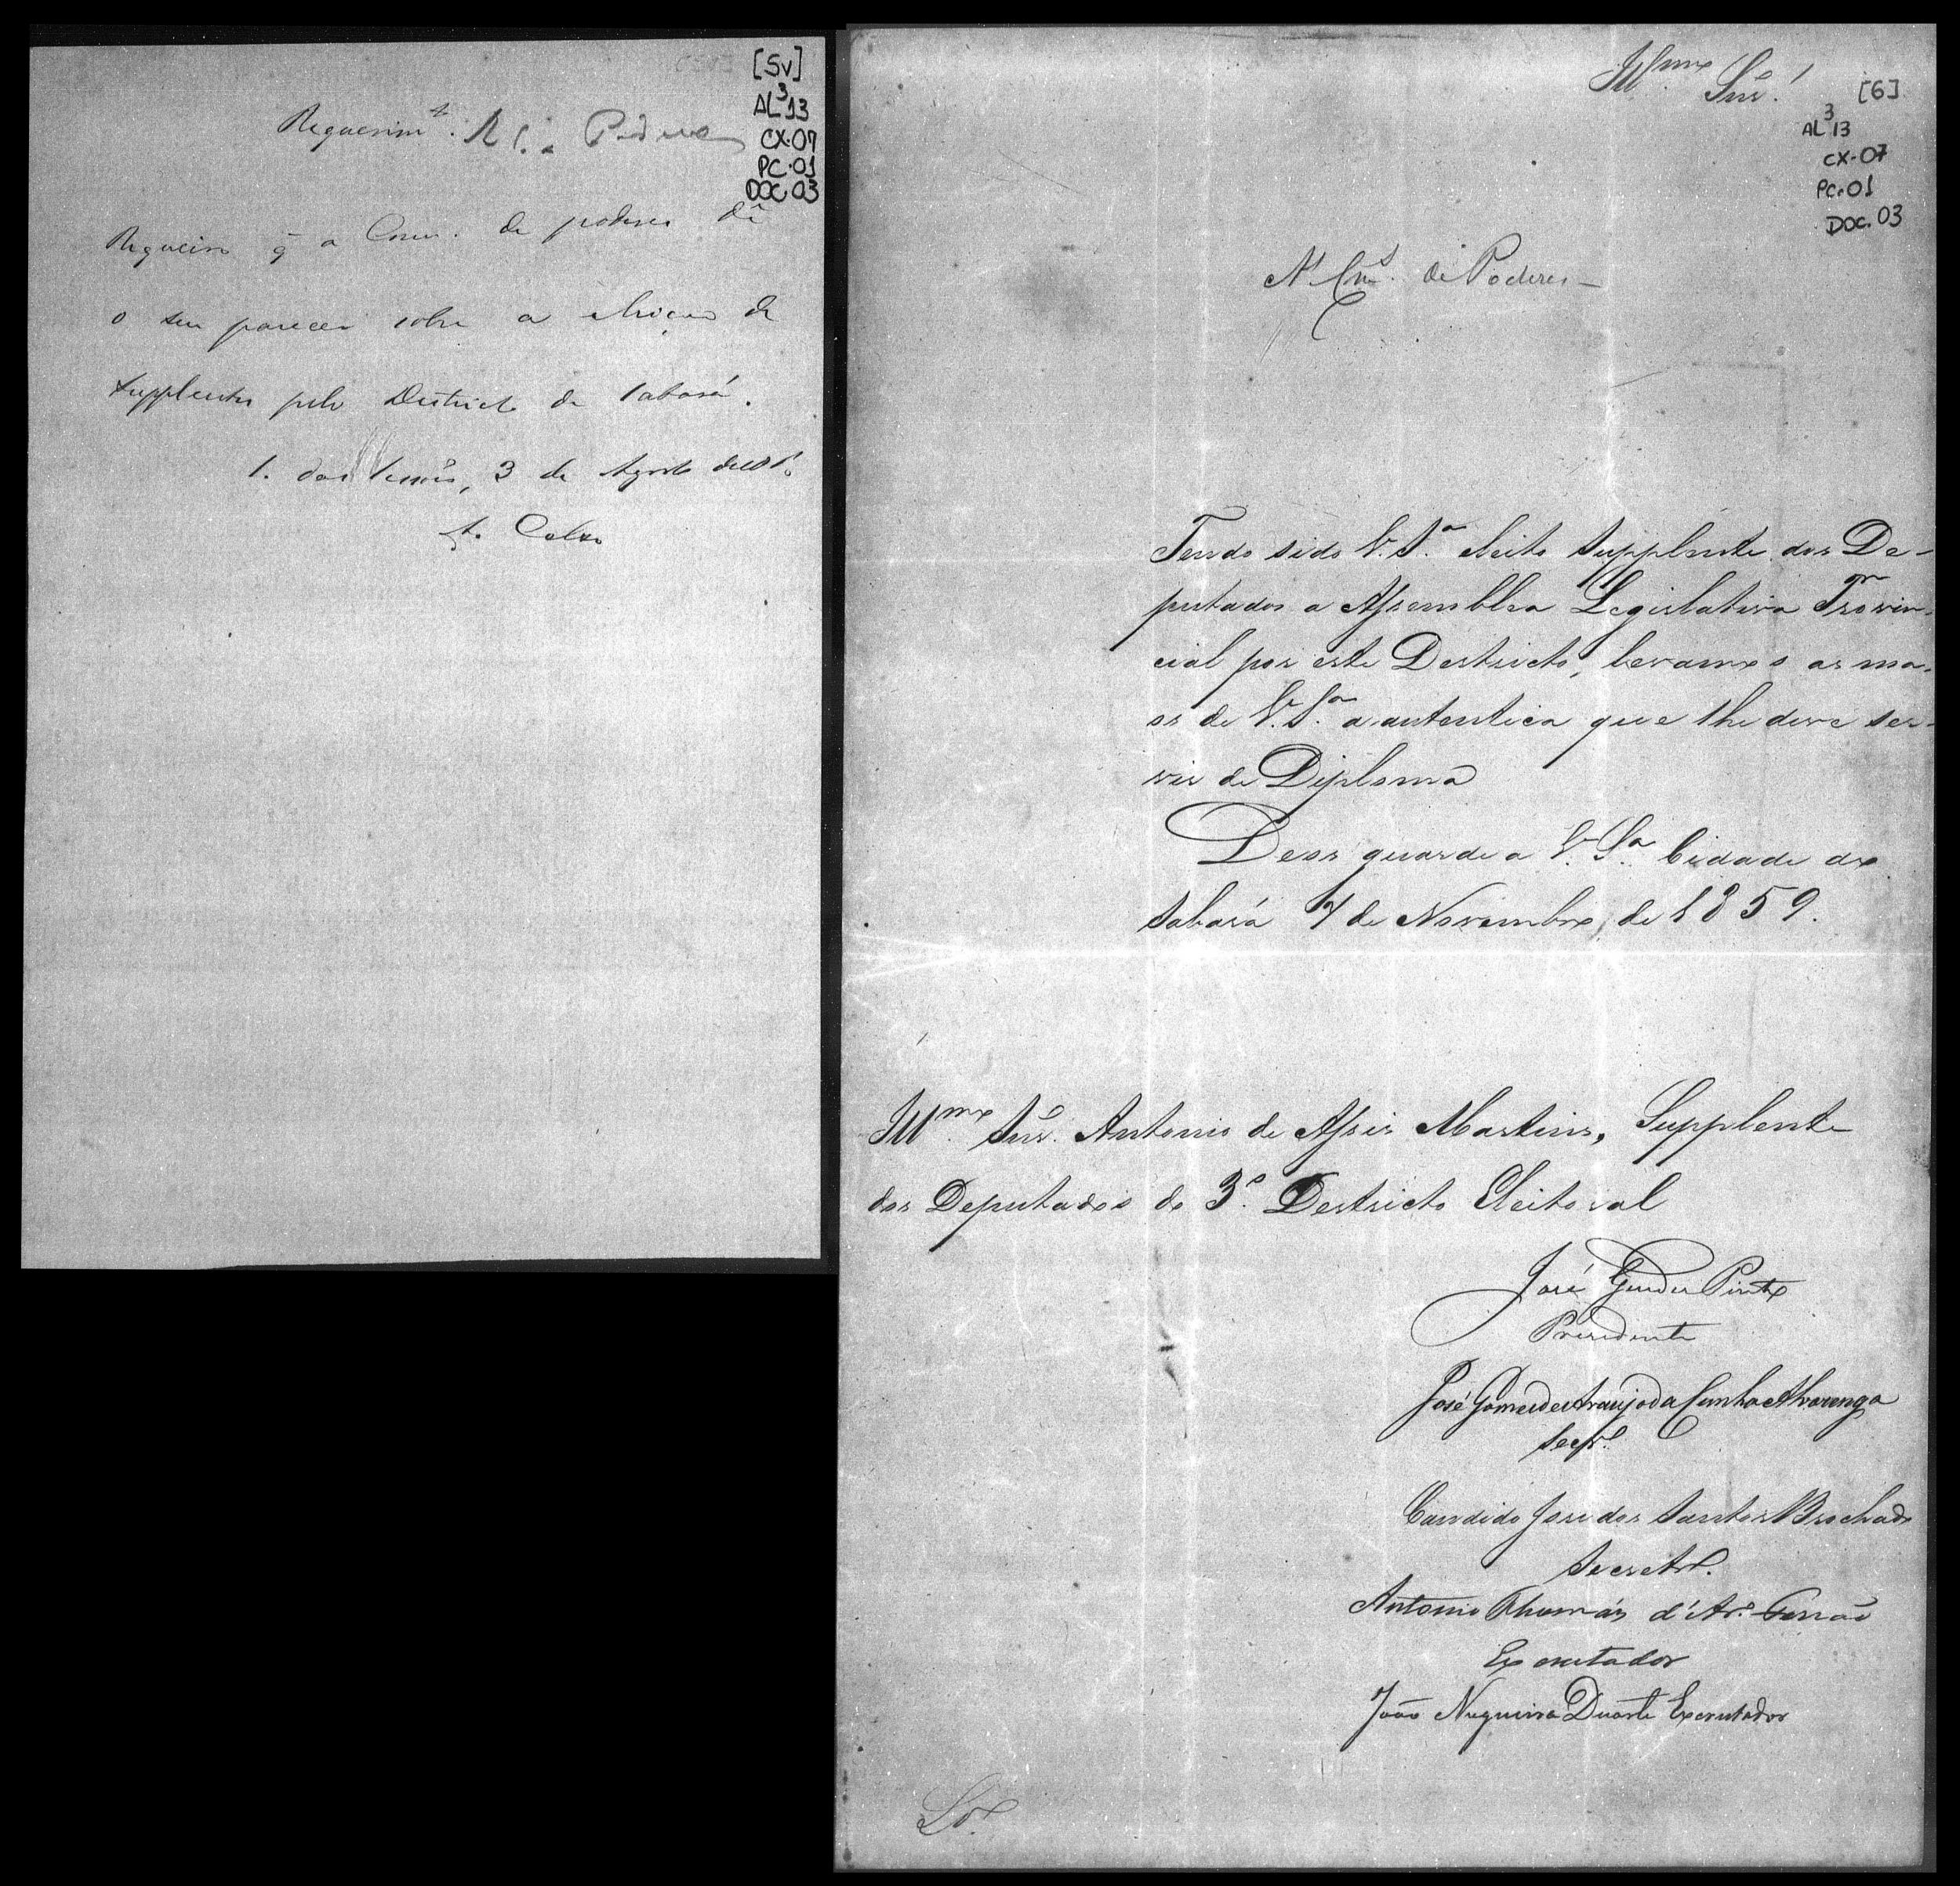 [5v]
AL³13
CX-07
PC-01
DOC.03
Requerim.to
Requeiro q̃ a Com. de poderes dê
o seu parecer sobre a eleiçao de
supplentes pelo Districto de Sabará.
S. das Sessões, 3 de Agosto de
A. Celso
Ill.mo Snr.!
[6]
AL³13
CX-07
PC-01
DOC.03
de Poderes
Tendo sido V. S.a eleito Supplente dos De-
putados a Assemblea Legislativa Provin-
cial por este Destricto, levamos as ma-
os de V. S.a a autentica que lhe deve ser-
vir de Diploma
Deos guarde a V. S.a Cidade do
Sabará 4 de Novembro de 1859.
Ill.mo Snr. Antonio de Assis Martins, Supplente
dos Deputados do 3.o Destricto Eleitoral
José Pinto
Presidente
José Gomes de Araujo da Cunha Alvarenga
Secr.o
Candido Jose dos Santos Brochado
Secret.o
Antonio Thomás d'Ar.o
Excrutador
João Nugueira Duarte Excrutador